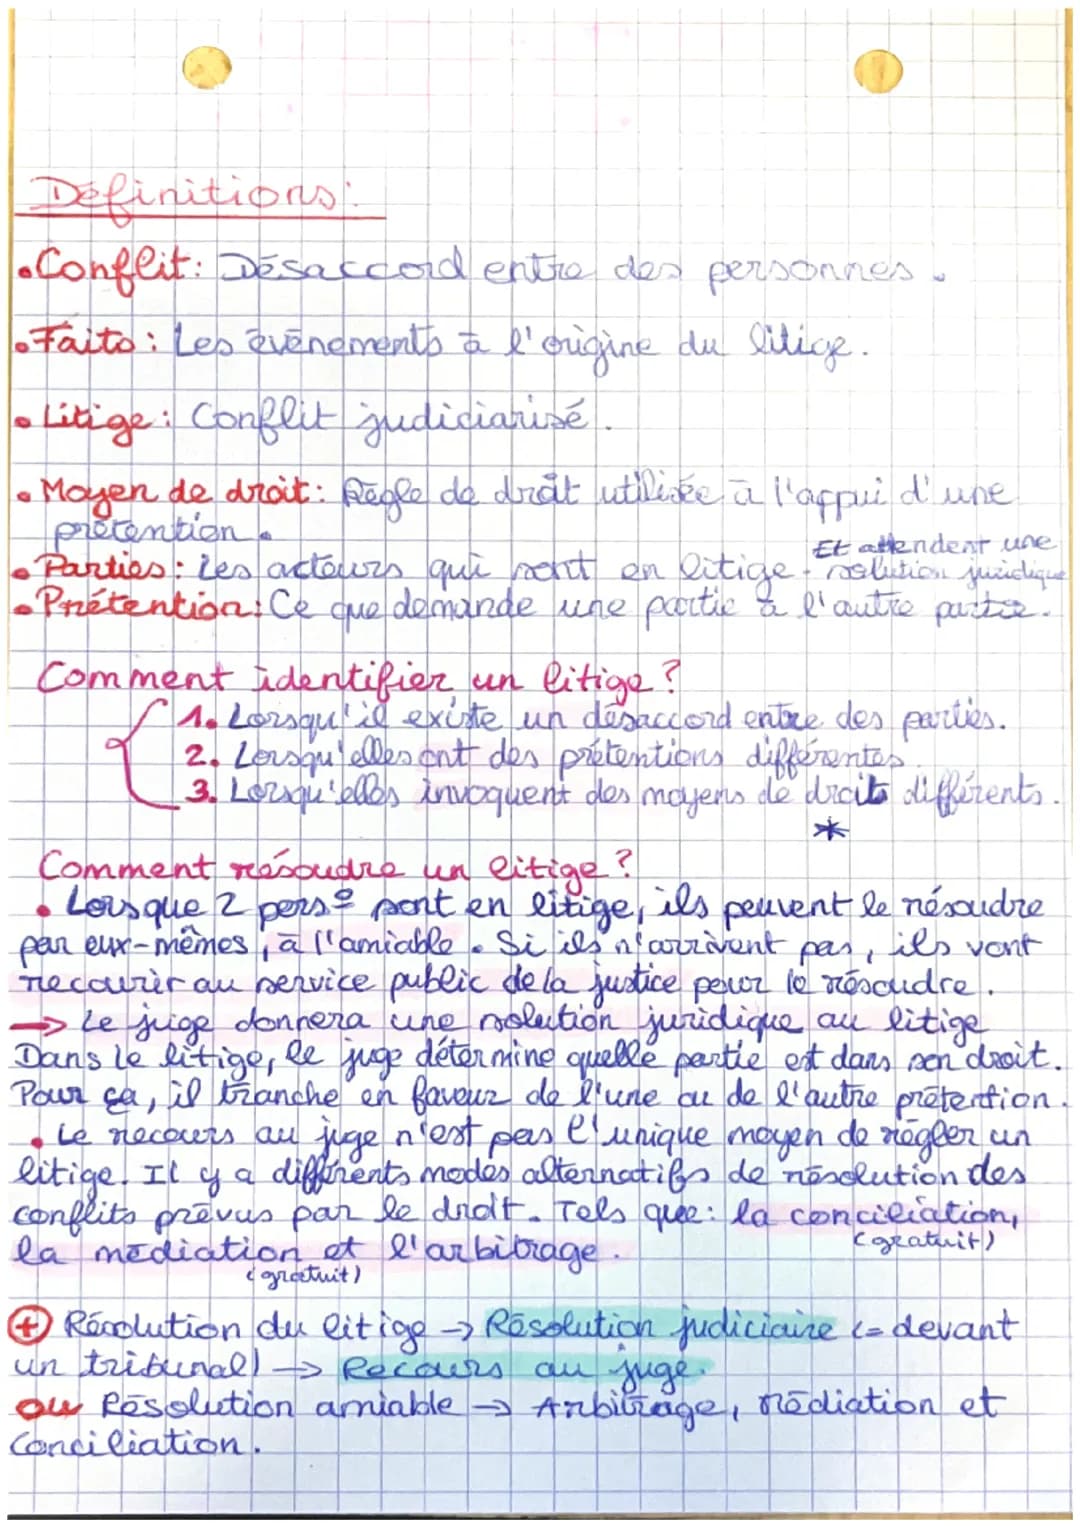 Définitions:
• Conflit: Désaccord entre des personnes.
• Faits: Les évènements à l'origine du litige.
• Litige: Conflit judiciarisé.
• Moyen de droit: Règle de droit utilisée à l'appui d'une
prétention.
Et attendent une
• Parties: Les acteurs qui sont en litige. solution juridique
• Prétention: Ce que demande une partie à l'autre partie.
Comment identifier un litige?
1. Lorsqu'il existe un désaccord entre des parties.
2. Lorsqu'elles ont des prétentions différentes.
3. Lorsqu'elles invoquent des moyens de droits différents.
*
Comment résoudre un litige?
• Lorsque 2 pers° sont en litige, ils peuvent le résoudre
par eux-mêmes, à l'amiable. Si ils n'arrivent pas, ils vont
recourir au service public de la justice pour le résoudre.
→ Le juge donnera une solution juridique au litige
Dans le litige, le juge détermine quelle partie est dans son droit.
Pour ça, il tranche en faveur de l'une ou de l'autre prétention.
• Le recours au juge n'est pas l'unique moyen de régler un
litige. Il y a différents modes alternatifs de résolution des
conflits prévus par le droit. Tels que: la conciliation,
(gratuit)
la médiation et l'arbitrage.
(gratuit)
+ Résolution du litige → Résolution judiciaire (= devant
un tribunal) → Recours au juge.
ou Résolution amiable → Arbitrage, médiation et
conciliation.